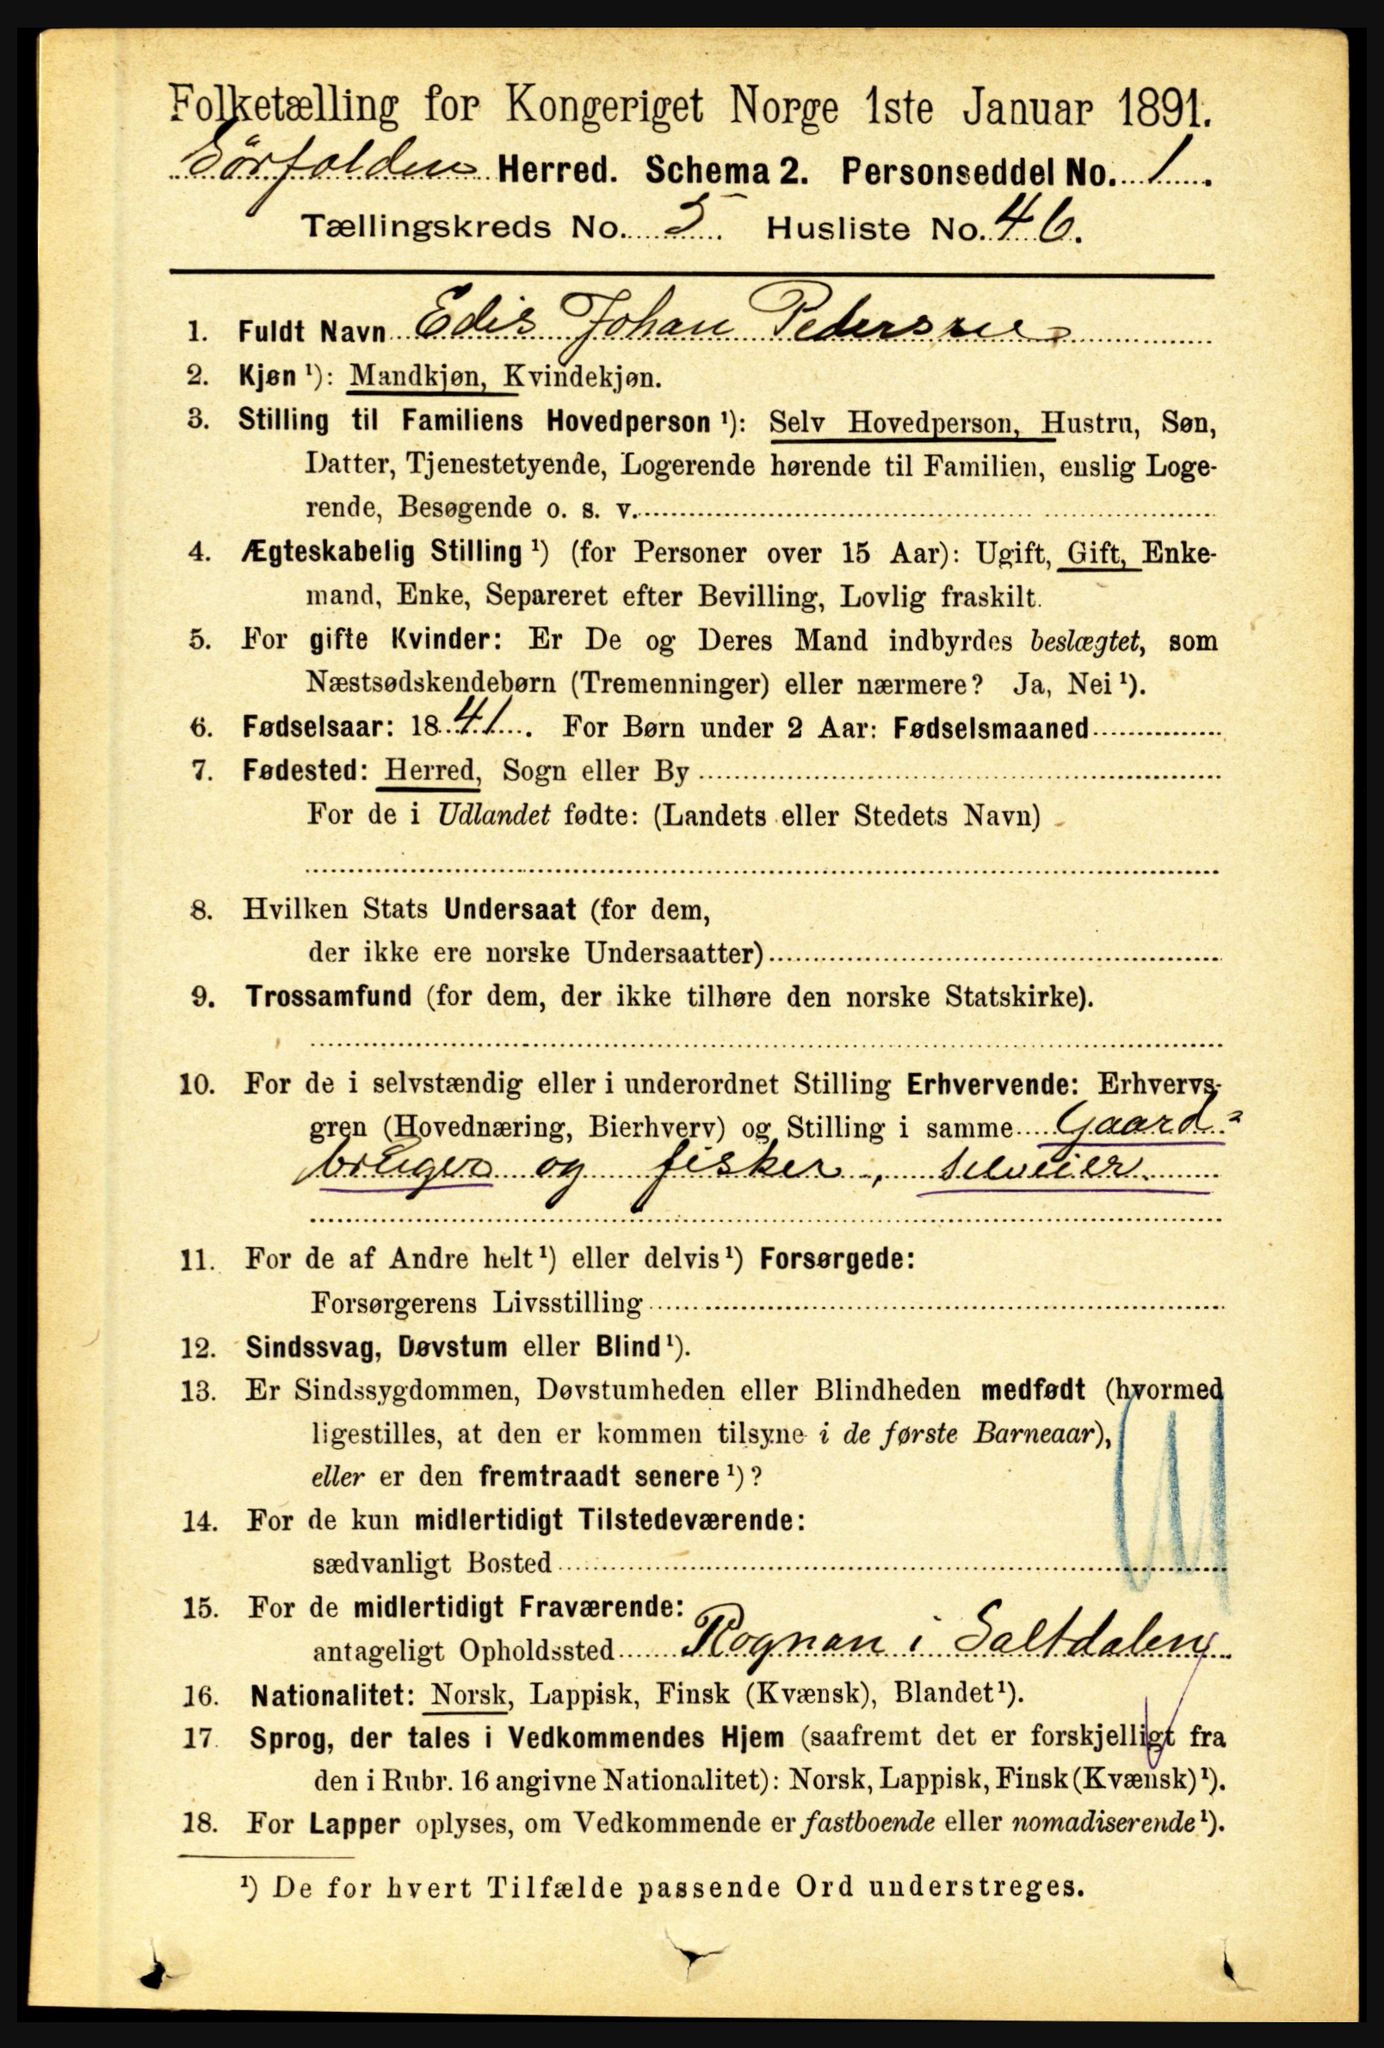 Folketælling for Kongeriget Norge 1ste Januar 1891.
Sörfolden Herred. Schema 2. Personseddel No. 1.
Tællingskreds No. 5 Husliste No. 46.
1. Fuldt Navn Edis Johan Pedersen
2. Kjøn ¹): Mandkjøn, Kvindekjøn.
3. Stilling til Familiens Hovedperson ¹): Selv Hovedperson, Hustru, Søn,
Datter, Tjenestetyende, Logerende hørende til Familien, enslig Loge-
rende, Besøgende o. s. v.
4. Ægteskabelig Stilling ¹) (for Personer over 15 Aar): Ugift, Gift, Enke-
mand, Enke, Separeret efter Bevilling, Lovlig fraskilt.
5. For gifte Kvinder: Er De og Deres Mand indbyrdes beslægtet, som
Næstsødskendebørn (Tremenninger) eller nærmere? Ja, Nei ¹).
6. Fødselsaar: 1841. For Børn under 2 Aar: Fødselsmaaned
7. Fødested: Herred, Sogn eller By
For de i Udlandet fødte: (Landets eller Stedets Navn)
8. Hvilken Stats Undersaat (for dem,
der ikke ere norske Undersaatter)
9. Trossamfund (for dem, der ikke tilhøre den norske Statskirke).
10. For de i selvstændig eller i underordnet Stilling Erhvervende: Erhvervs-
gren (Hovednæring, Bierhverv) og Stilling i samme Gaard-
bruger og fisker, selveier.
11. For de af Andre helt ¹) eller delvis ¹) Forsørgede:
Forsørgerens Livsstilling
12. Sindssvag, Døvstum eller Blind ¹).
13. Er Sindssygdommen, Døvstumheden eller Blindheden medfødt (hvormed
ligestilles, at den er kommen tilsyne i de første Barneaar),
eller er den fremtraadt senere ¹)?
14. For de kun midlertidigt Tilstedeværende:
sædvanligt Bosted
15. For de midlertidigt Fraværende:
antageligt Opholdssted Rognan i Saltdalen
16. Nationalitet: Norsk, Lappisk, Finsk (Kvænsk), Blandet ¹).
17. Sprog, der tales i Vedkommendes Hjem (saafremt det er forskjelligt fra
den i Rubr. 16 angivne Nationalitet): Norsk, Lappisk, Finsk (Kvænsk) ¹).
18. For Lapper oplyses, om Vedkommende er fastboende eller nomadiserende ¹).
¹) De for hvert Tilfælde passende Ord understreges.